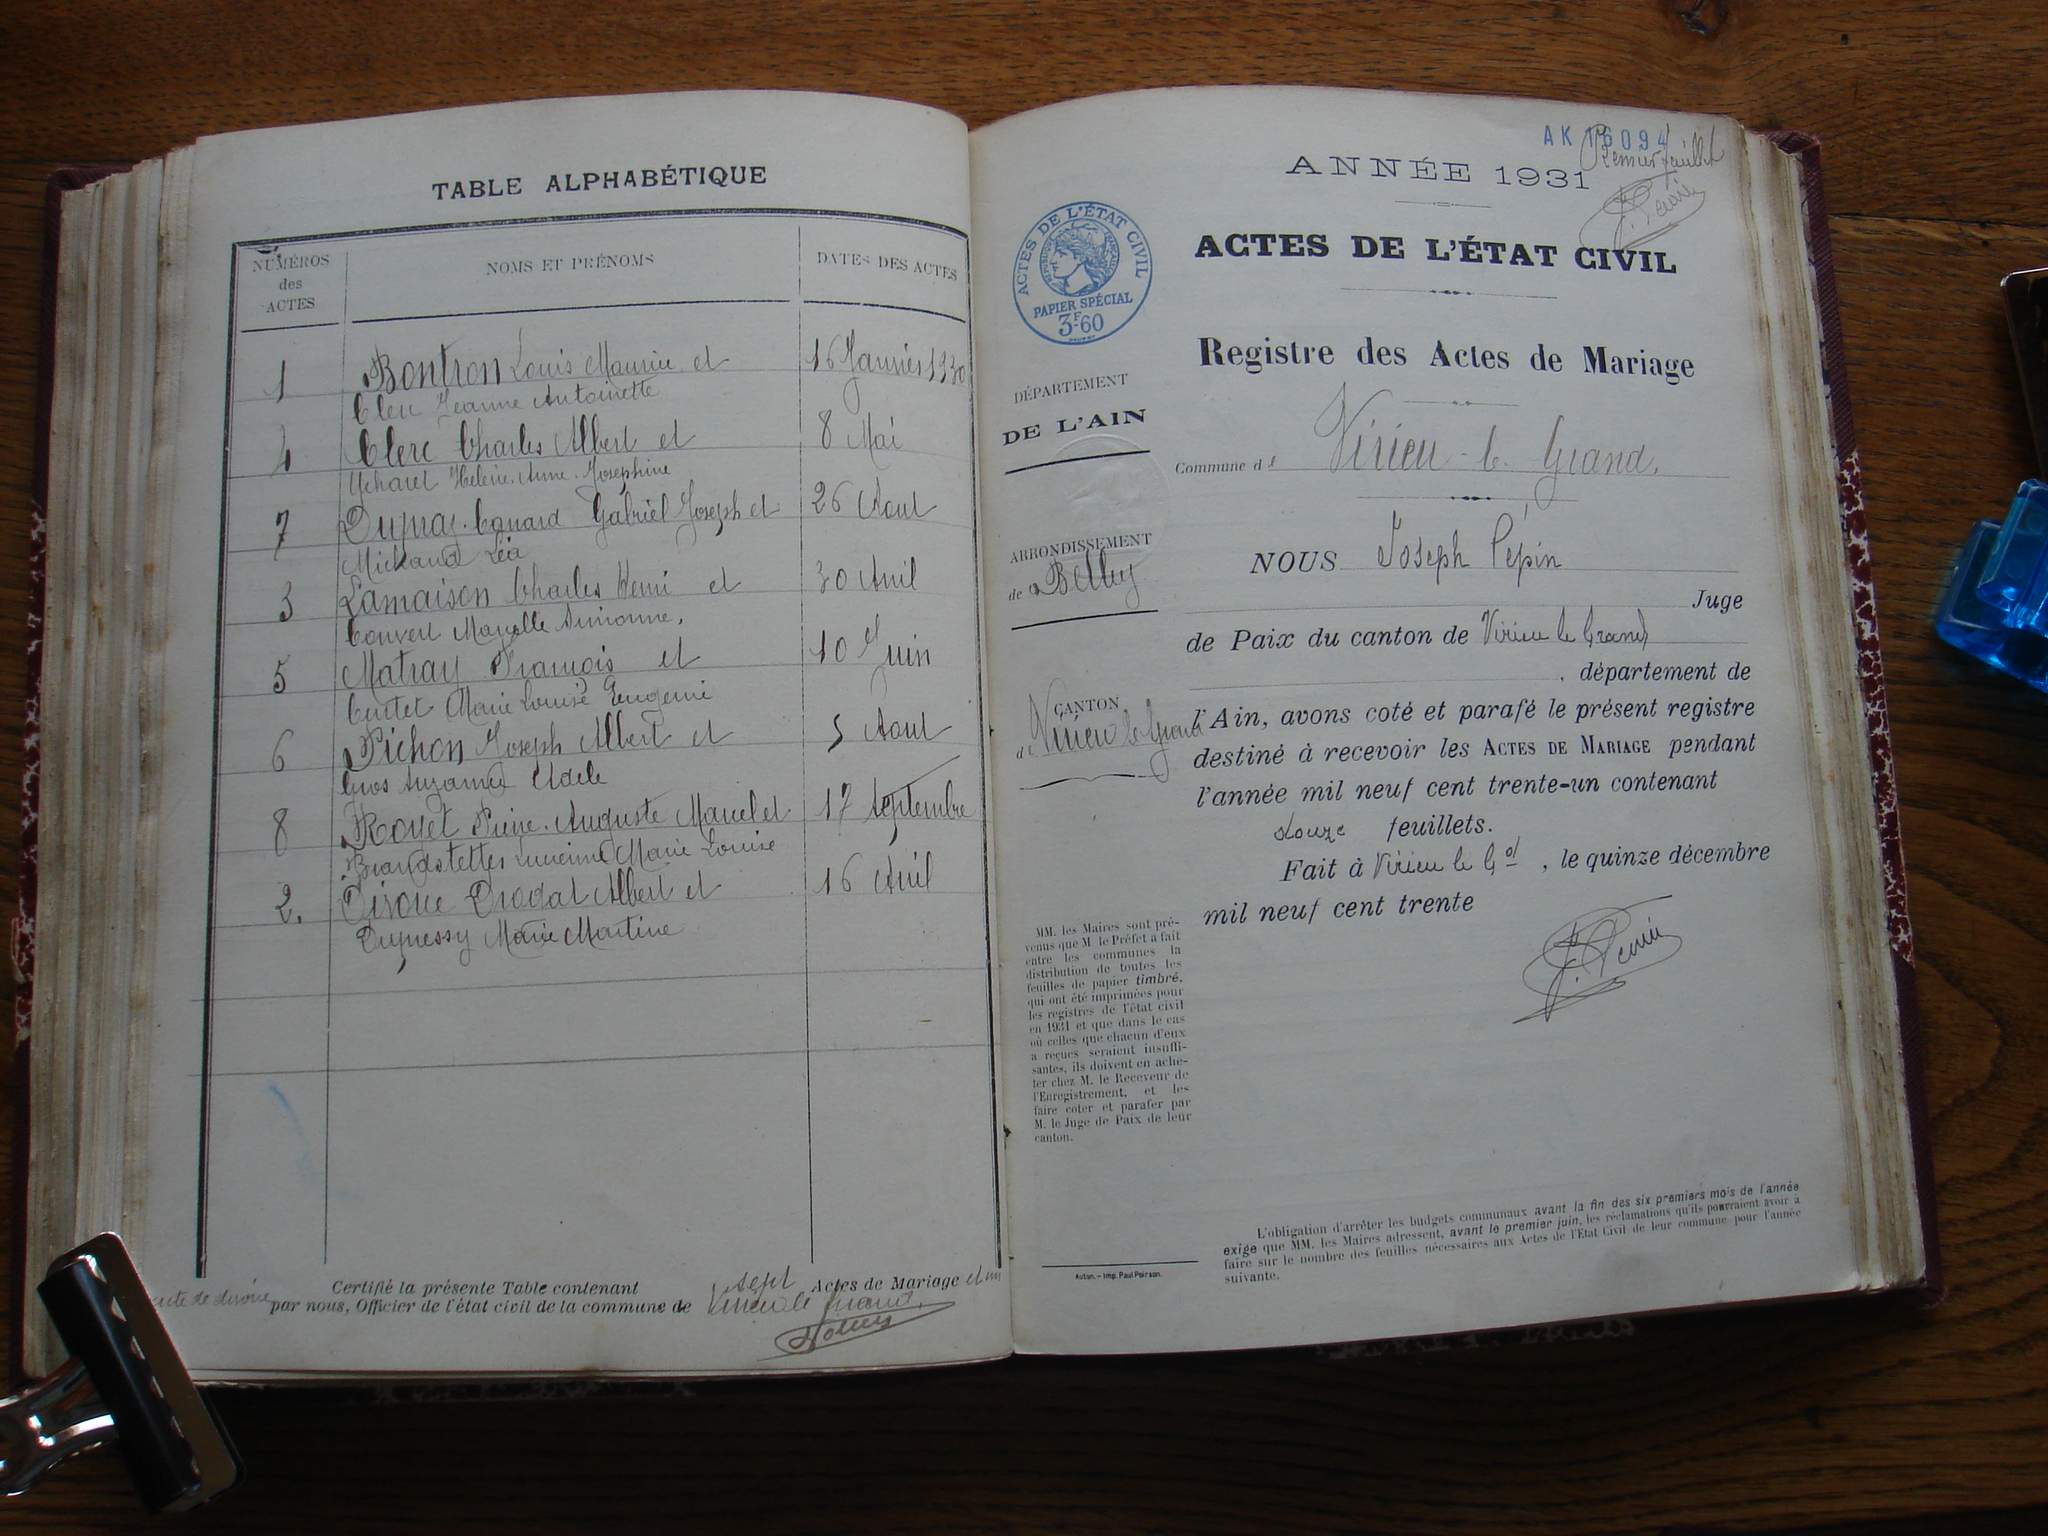 TABLE ALPHABÉTIQUE
NUMÉROS des ACTES
NOMS ET PRÉNOMS
DATES DES ACTES
1 Bontron Louis Maurice et 16 Janvier 1930
Jeanne Antoinette
4 Clerc Charles Albert et 8 Mai
Hélène Anne Josephine
7 Gabriel Joseph et 26 Aout
Michaud Léa
3 Lamaison Charles Henri et 30 Avril
Convert Marcelle Simonne,
5 Matray François et 10 Juin
Curtet Marie Louise Eugenie
6 Pichon Joseph Albert et 5 Aout
Gros Suzanne Adele
8 Royet Pierre Auguste Marcel et 17 Septembre
Brandstetter Lucienne Marie Louise
2. Albert et 16 Avril
Dupessy Marie Martine
Certifié la présente Table contenant sept Actes de Mariage et un
acte de divorce par nous, Officier de l'état civil de la commune de Virieu le Grand.
AK 16094
Premier feuillet
J. Pépin
ANNÉE 1931
ACTES DE L'ÉTAT CIVIL
PAPIER SPÉCIAL
3F.60
ACTES DE L'ÉTAT CIVIL
Registre des Actes de Mariage
Commune de Virieu-le-Grand.
DÉPARTEMENT
DE L'AIN
ARRONDISSEMENT
de Belley
CANTON
de Virieu le Grand
NOUS Joseph Pépin
Juge
de Paix du canton de Virieu le Grand
, département de
l'Ain, avons coté et parafé le présent registre
destiné à recevoir les ACTES DE MARIAGE pendant
l'année mil neuf cent trente-un contenant
douze feuillets.
Fait à Virieu le Gd, le quinze décembre
mil neuf cent trente
J. Pépin
MM. les Maires sont pré-
venus que M. le Préfet a fait
entre les communes la
distribution de toutes les
feuilles de papier timbré,
qui ont été imprimées pour
les registres de l'état civil
en 1931 et que dans le cas
où celles que chacun d'eux
a reçues seraient insuffi-
santes, ils doivent en ache-
ter chez M. le Receveur de
l'Enregistrement, et les
faire coter et parafer par
M. le Juge de Paix de leur
canton.
Autun. — Imp. Paul Poirson.
L'obligation d'arrêter les budgets communaux avant la fin des six premiers mois de l'année
exige que MM. les Maires adressent, avant le premier juin, les réclamations qu'ils pourraient avoir à
faire sur le nombre des feuilles nécessaires aux Actes de l'État Civil de leur commune pour l'année
suivante.